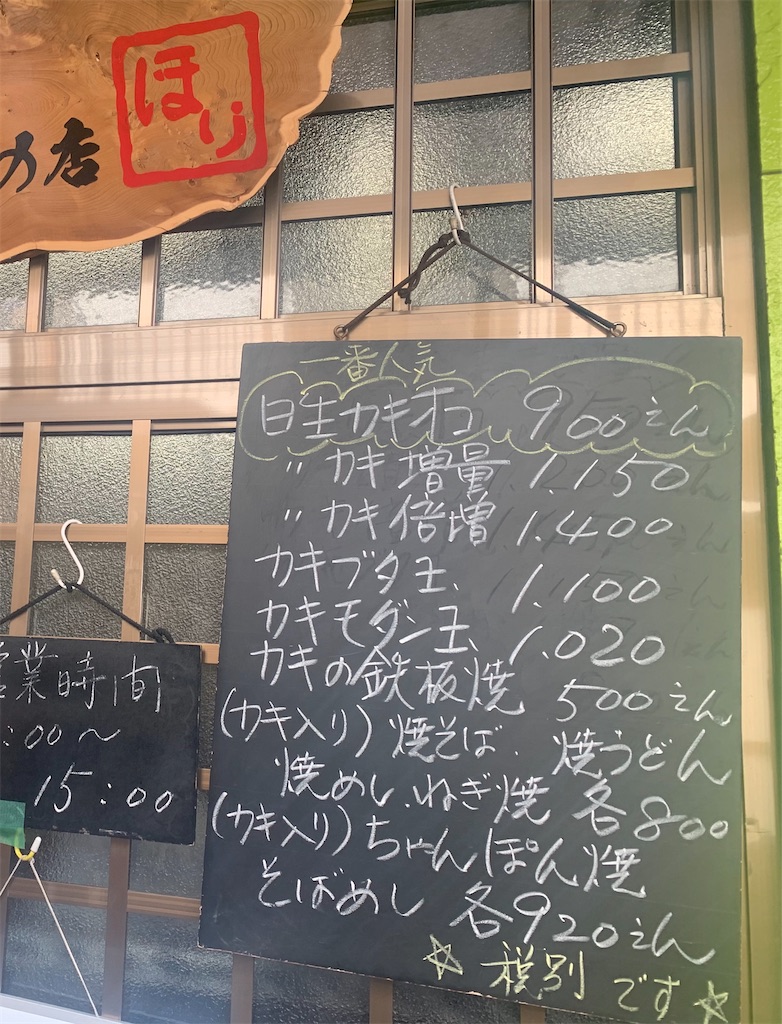 ほり
の店
一番人気
日生カキオコ 900えん
〃 カキ増量 1.150
〃 カキ倍増 1.400
カキブタ玉、 1.100
カキモダン玉、 1.020
カキの鉄板焼 500えん
(カキ入り)焼そば. 焼うどん
焼めし、ねぎ焼 各800
(カキ入り)ちゃんぽん焼
そばめし 各920えん
☆ 税別 です☆
営業時間
:00〜
15:00